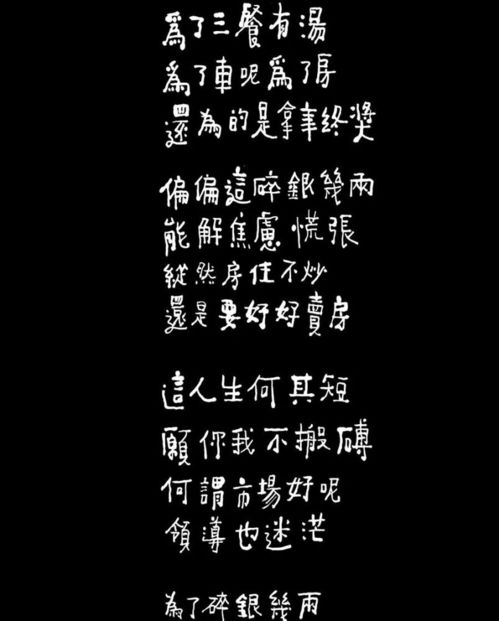 為了三餐有湯
為了車呢為了房
還為的是拿年終獎
偏偏這碎銀幾兩
能解焦慮慌張
縱然房住不炒
還是要好好賣房
這人生何其短
願你我不搬磚
何謂市場好呢
領導也迷茫
為了碎銀幾兩